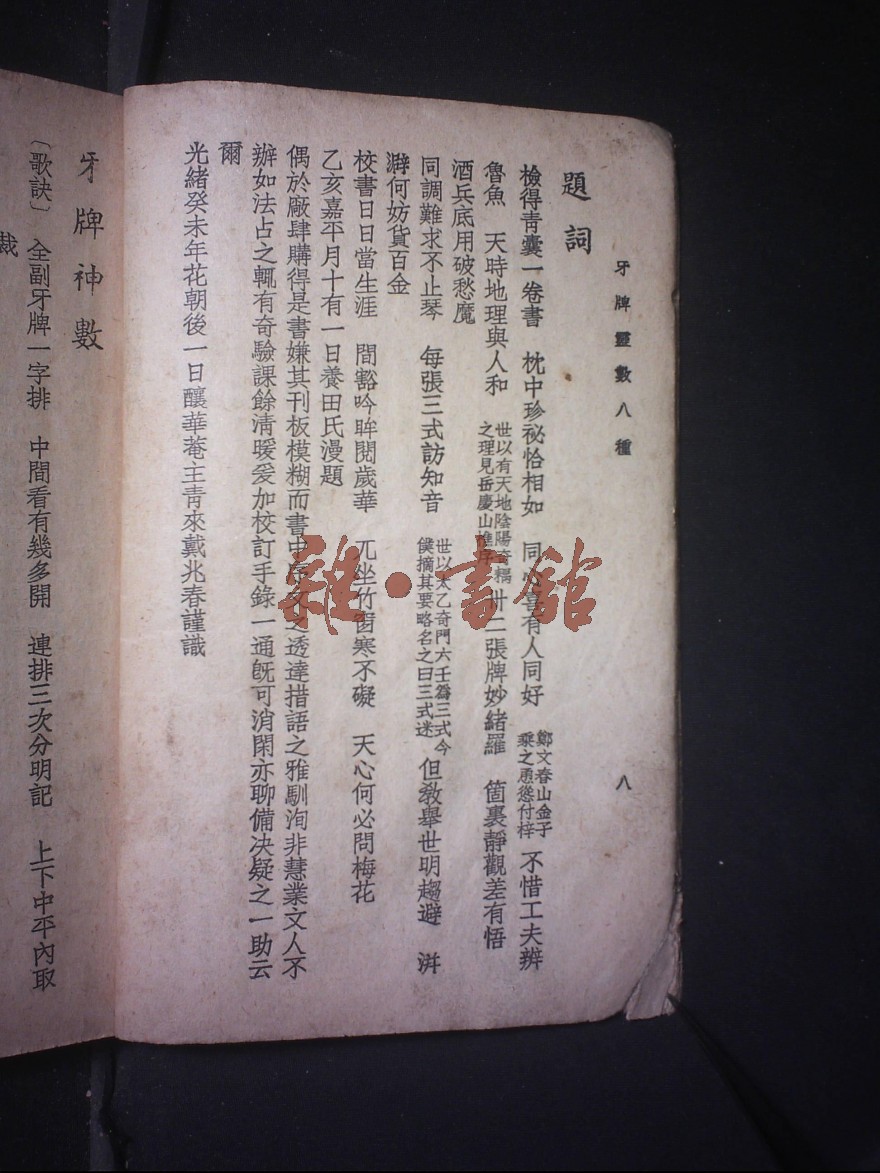 牙牌靈數八種
八
題詞
檢得青囊一卷書　枕中珍祕恰相如　同心喜有人同好　鄭文春山金子乘之慂付梓　不惜工夫辨
魯魚　天時地理與人和　世以有天地陰陽奇耦之理見岳慶山樵序　卅二張牌妙緒羅　箇裏靜觀差有悟
酒兵底用破愁魔
同調難求不止琴　每張三式訪知音　世以太乙奇門六壬爲三式今僕摘其要略名之曰三式迷　但敎舉世明趨避　洴
澼何妨貨百金
校書日日當生涯　間豁吟眸閱歲華　兀坐竹窗寒不礙　天心何必問梅花
乙亥嘉平月十有一日養田氏漫題
偶於廠肆購得是書嫌其刊板模糊而書中之透達措語之雅馴洵非慧業文人不
辦如法占之輒有奇驗課餘清暖爰加校訂手錄一通旣可消閑亦聊備决疑之一助云
爾
光緒癸未年花朝後一日釀華菴主靑來戴兆春謹識
牙牌神數
〔歌訣〕　全副牙牌一字排　中間看有幾多開　連排三次分明記　上下中平內取
裁
雜·書館